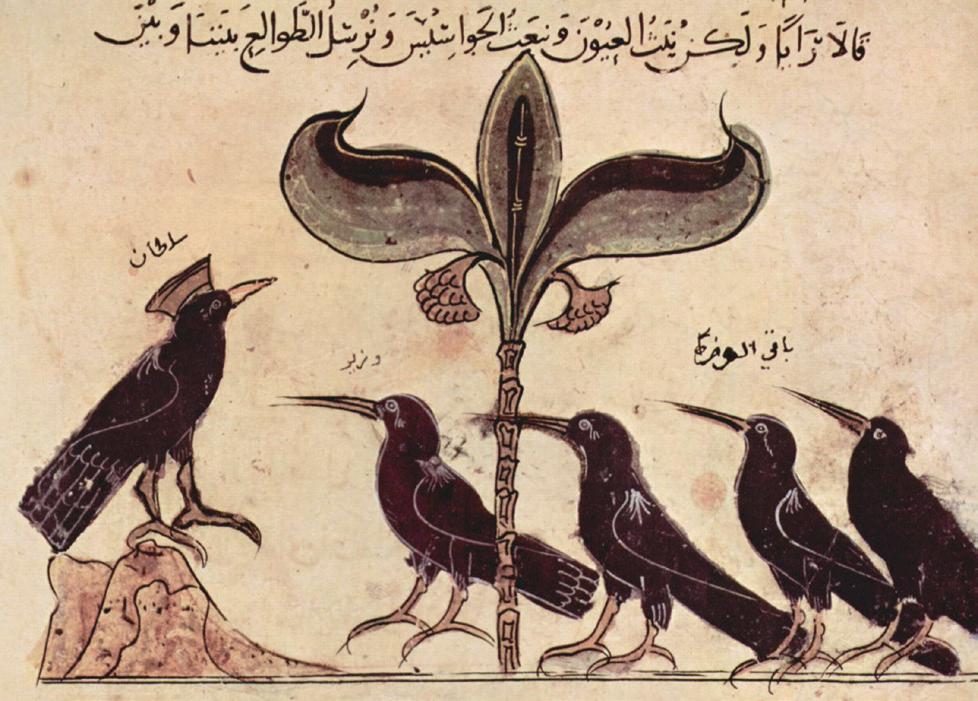 قال لا رايا ولكن نبث العيون ونبعث الجواسيس ونرسل الطوالع بيننا وبين
سلطان
وزير
باقي الوزرا